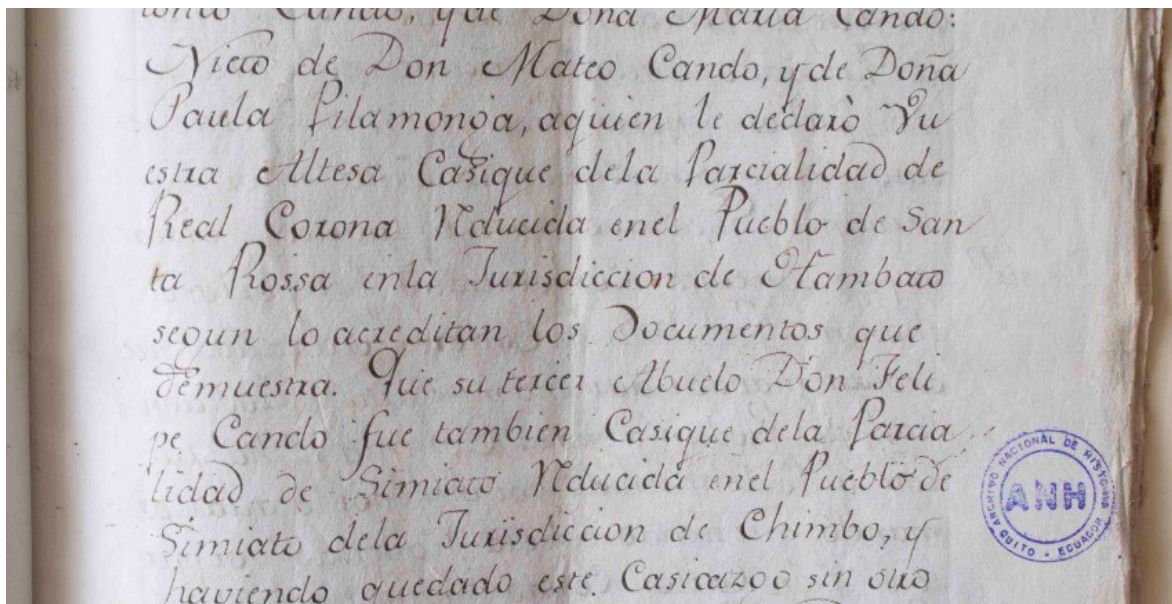 tonio Cando, y de Doña Maria Cando:
Nieto de Don Mateo Cando, y de Doña
Paula Pilamonga, aquien le declarò Vu
estra Altesa Casique dela Parcialidad de
Real Corona Rducida enel Pueblo de San
ta Rossa enla Jurisdiccion de Hambato
segun lo acreditan los Documentos que
demuestra. Que su tercer Abuelo Don Feli
pe Cando fue tambien Casique dela Parcia
lidad de Simiato Rducida enel Pueblo de
Simiato dela Jurisdiccion de Chimbo, y
haviendo quedado este Casicazgo sin otro
ARCHIVO NACIONAL DE HISTORIA
ANH
QUITO - ECUADOR